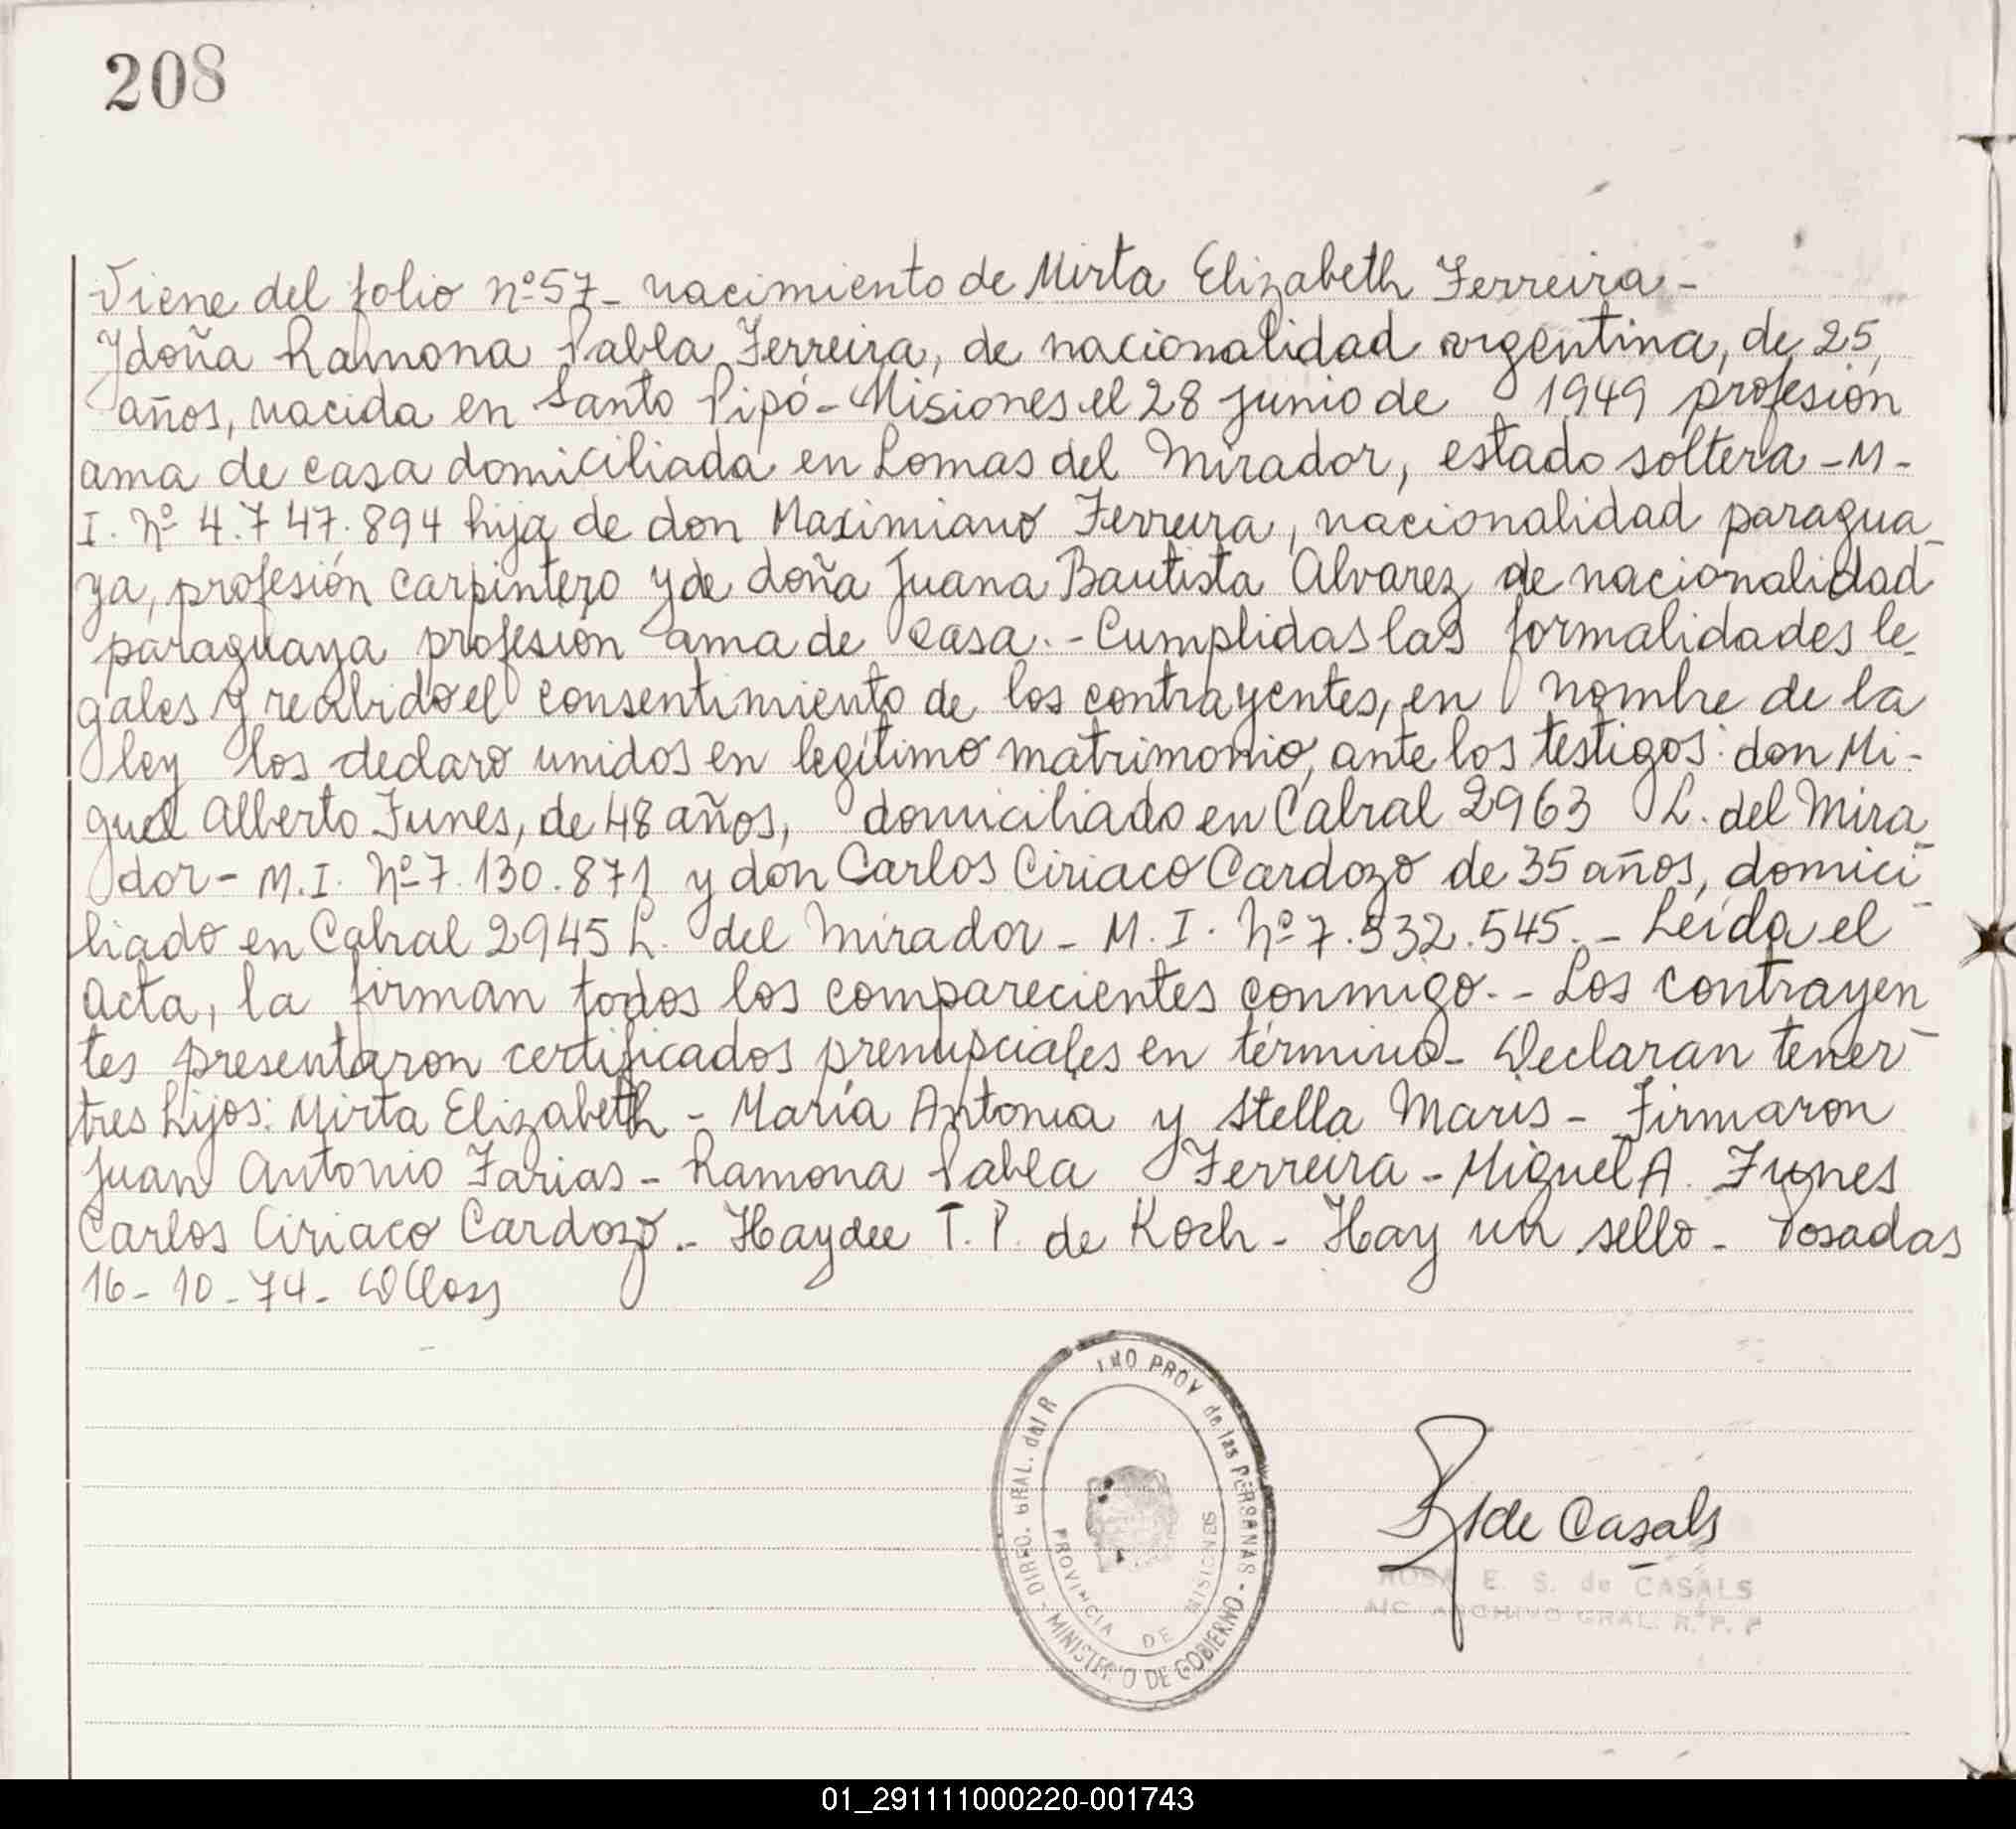 208
Viene del folio nº 57_ nacimiento de Mirta Elizabeth Ferreira -
Y doña Ramona Pabla Ferreira, de nacionalidad argentina, de 25
años, nacida en Santo Pipó - Misiones el 28 junio de 1949 profesión
ama de casa domiciliada en Lomas del Mirador, estado soltera - M -
I. Nº 4.747.894 hija de don Maximiano Ferreira, nacionalidad paragua_
ya, profesión carpintero y de doña Juana Bautista Alvarez de nacionalidad
paraguaya profesión ama de casa. - Cumplidas las formalidades le_
gales y recibido el consentimiento de los contrayentes, en nombre de la
ley los declaro unidos en legítimo matrimonio, ante los testigos: don Mi -
guel Alberto Funes, de 48 años, domiciliado en Cabral 2963 L. del Mira_
dor - M.I. Nº 7.130.871 y don Carlos Ciriaco Cardozo de 35 años, domici_
liado en Cabral 2945 L. del Mirador - M. I. Nº 7.532.545. - Leída el
Acta, la firman todos los comparecientes conmigo. - Los contrayen_
tes presentaron certificados prenupciales en término - Declaran tener
tres hijos: Mirta Elizabeth - María Antonia y Stella Maris - Firmaron
Juan Antonio Farias - Ramona Pabla Ferreira - Miguel A. Funes
Carlos Ciriaco Cardozo. - Haydee T. P. de Koch - Hay un sello - Posadas
16 - 10 - 74 -
DIREC. GRAL. del R PROV de las PERSONAS -
MINISTERIO DE GOBIERNO -
PROVINCIA DE MISIONES
de Casals
ROSA E. S. de CASALS
ARCHIVO GRAL. R. P. P
01_291111000220-001743